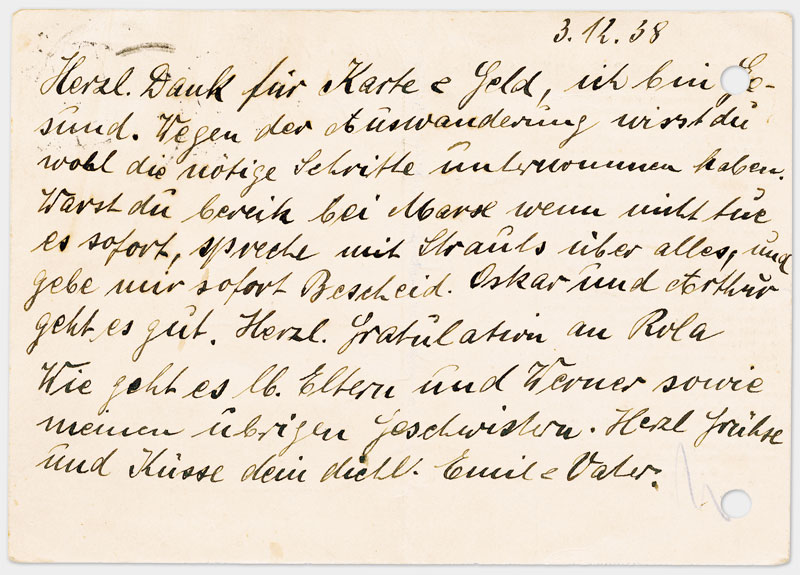 3.12.38
Herzl. Dank für Karte & Geld, ich bin Ge-
sund. Wegen der Auswanderung wirst du
wohl die nötige Schritte unternommen haben.
Warst du bereit bei Marx wenn nicht tue
es sofort, spreche mit Strauß über alles, und
gebe mir sofort Bescheid. Oskar und Arthur
geht es gut. Herzl. Gratulation an Rola
Wie geht es lb. Eltern und Werner sowie
meinen übrigen Geschwistern. Herzl Grühse
und Küsse dein dichl. Emil & Vater.